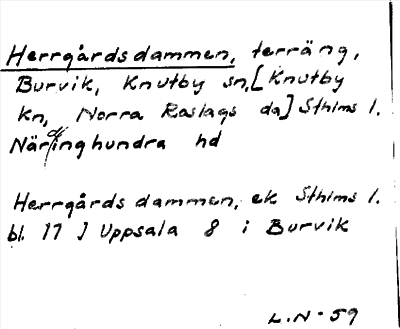 Herrgårdsdammen, terräng,
Burvik, Knutby sn, [Knutby
kn, Norra Roslags da] Sthlms l.
Närdinghundra hd
Herrgårdsdammen, ek Sthlms l.
bl. 17 J Uppsala 8 i Burvik
L.N-59